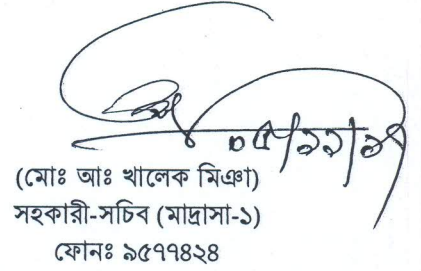 ০৫/১১/১৭
(মোঃ আঃ খালেক মিঞা)
সহকারী-সচিব (মাদ্রাসা-১)
ফোনঃ ৯৫৭৭৪২৪